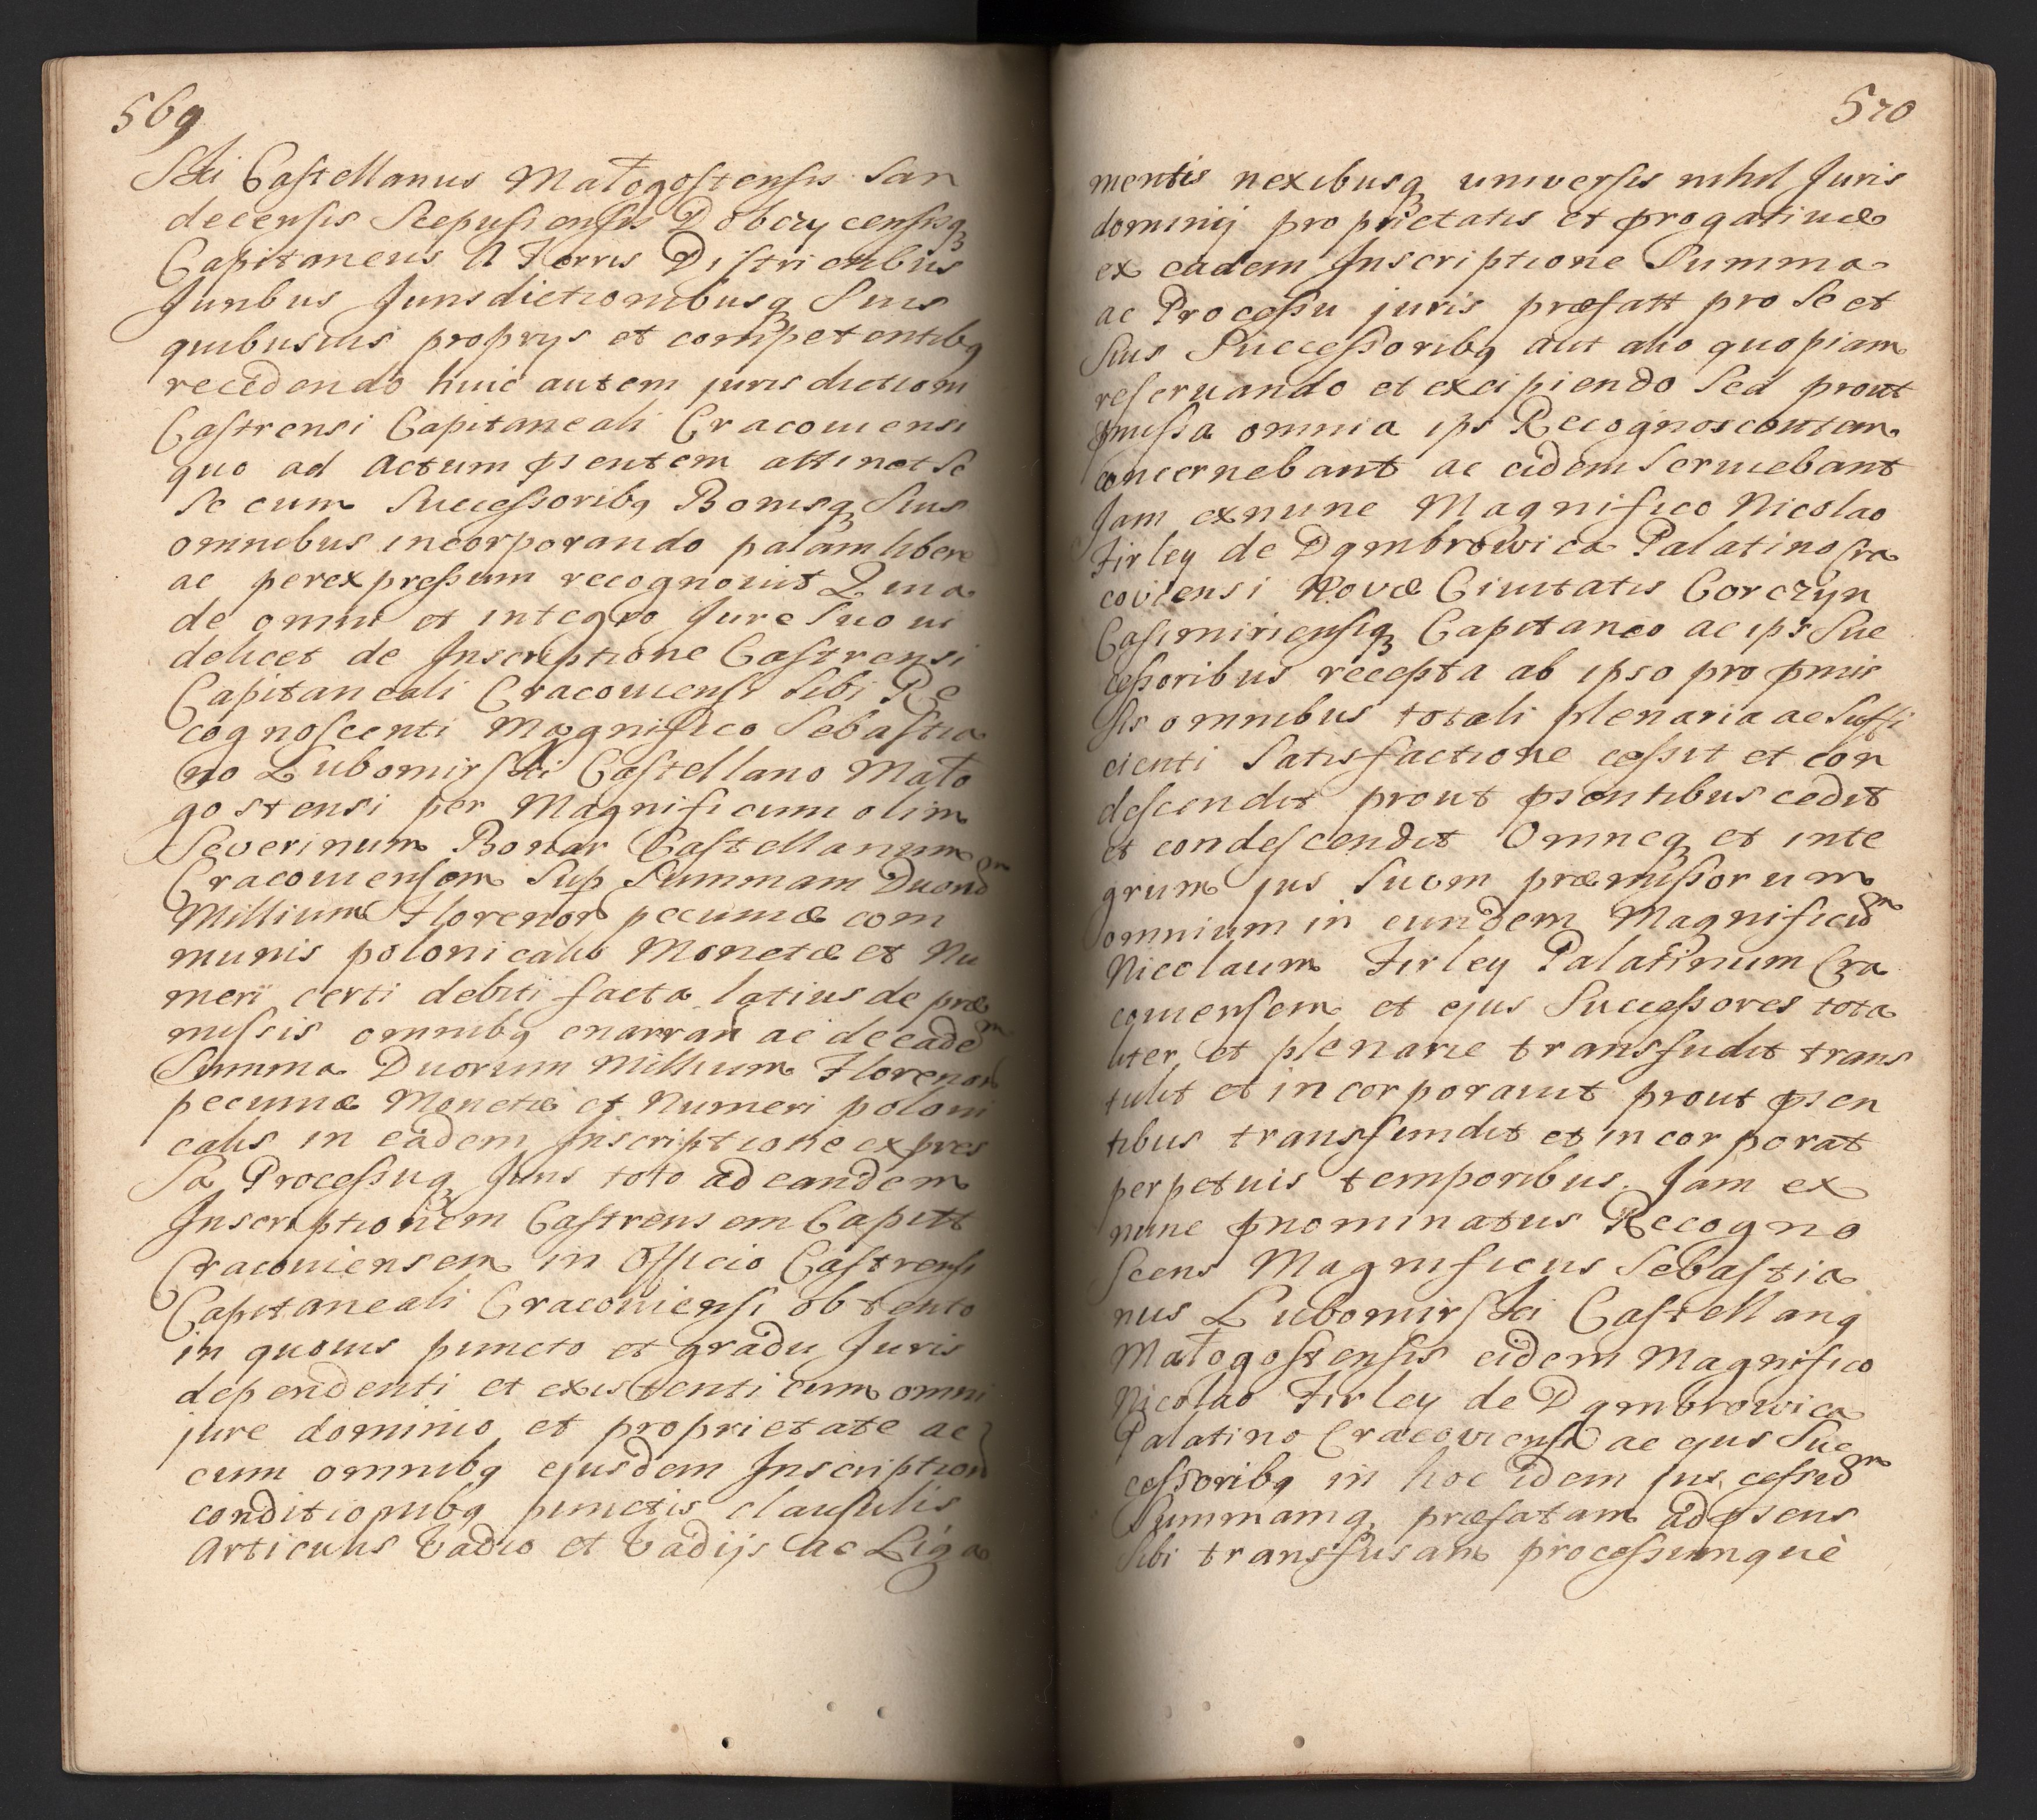 569
ski Castellanus Małogostensis San
decensis Scepusiensis Dobczycensisq3
Capitaneus A Terris Districtibus
Juribus Jurisdictionibusq3 Suis
quibusuis proprys et competentibq
recedendo huic autem jurisdictioni
Castrensi Capitaneali Cracouiensi
quo ad Actum pñentem attinet Se
Se cum Successoribq Bonisq3 Suis
omnibus incorporando palam libere
ac per expressum recognouit Quia
de omni et integro Jure Suo ui
delicet de Inscriptione Castrensi
Capitaneali Cracouiensi Sibi Re
cognoscenti Magnifico Sebastia
no Lubomirski Castellano Mało
gostensi per Magnificum olim
Severinum Bonar Castellanum
Cracouiensem Sup Summam Duorū
Millium Florenorū pecuniæ com
munis polonicalis Monetæ et Nu
meri certi debiti facta latius de præ
missis omnibq enarran ac de eadem
Summa Duorum Millium Florenorū
pecuniæ Monetæ et Numeri poloni
calis in eadem Inscriptione expres
Sa Processuq3 Juris toto ad eandem
Inscriptionem Castrensem Capitt
Cracouiensem in Officio Castrensi
Capitaneali Cracouiensi obtento
in quouis puncto et gradu Juris
dependenti et existenti cum omni
jure dominio et proprietate ac
cum omnibq ejusdem Inscription
conditionibq punctis clausulis
Articulis Vadio et Vadijs ac Liga
570
mentis nexibusq3 universis nihil Juris
dominij proprietatis et prrogatiuæ
ex eadem Inscriptione Summa
ac Processu juris præfatt pro Se et
Suis Successoribq aut alio quopiam
reseruando et excipiendo Sed prout
pmissa omnia ips Recognoscentem
concernebant ac eidem Seruiebant
Jam exnunc Magnifico Nicolao
Firley de Dąmbrowica Palatino Cra
coviensi Novæ Ciuitatis Corczyn
Casimiriensiq3 Capitaneo ac ips Suc
cessoribus recepta ab ipso pro pmis
sis omnibus totali plenaria ac Suffi
cienti Satisfactione cessit et con
descendit prout pñentibus cedit
et condescendit Omneq3 et inte
grum jus Suum præmissorum
omnium in eundem Magnificum
Nicolaum Firley Palatinum Cra
couiensem et ejus Successores tota
liter et plenarie transfudit trans
tulit et incorporauit prout pñen
tibus transfundit et incorporat
perpetuis temporibus. Jam ex
nunc pnominatus Recogno
scens Magnificus Sebastia
nus Lubomirski Castellanq
Małogostensis eidem Magnifico
Nicolao Firley de Dąmbrowica
Palatino Cracoviensi ac ejus Suc
cessoribq in hoc idem Jus cessum
Summamq præfatam ad pñens
Sibi transfusam processumque